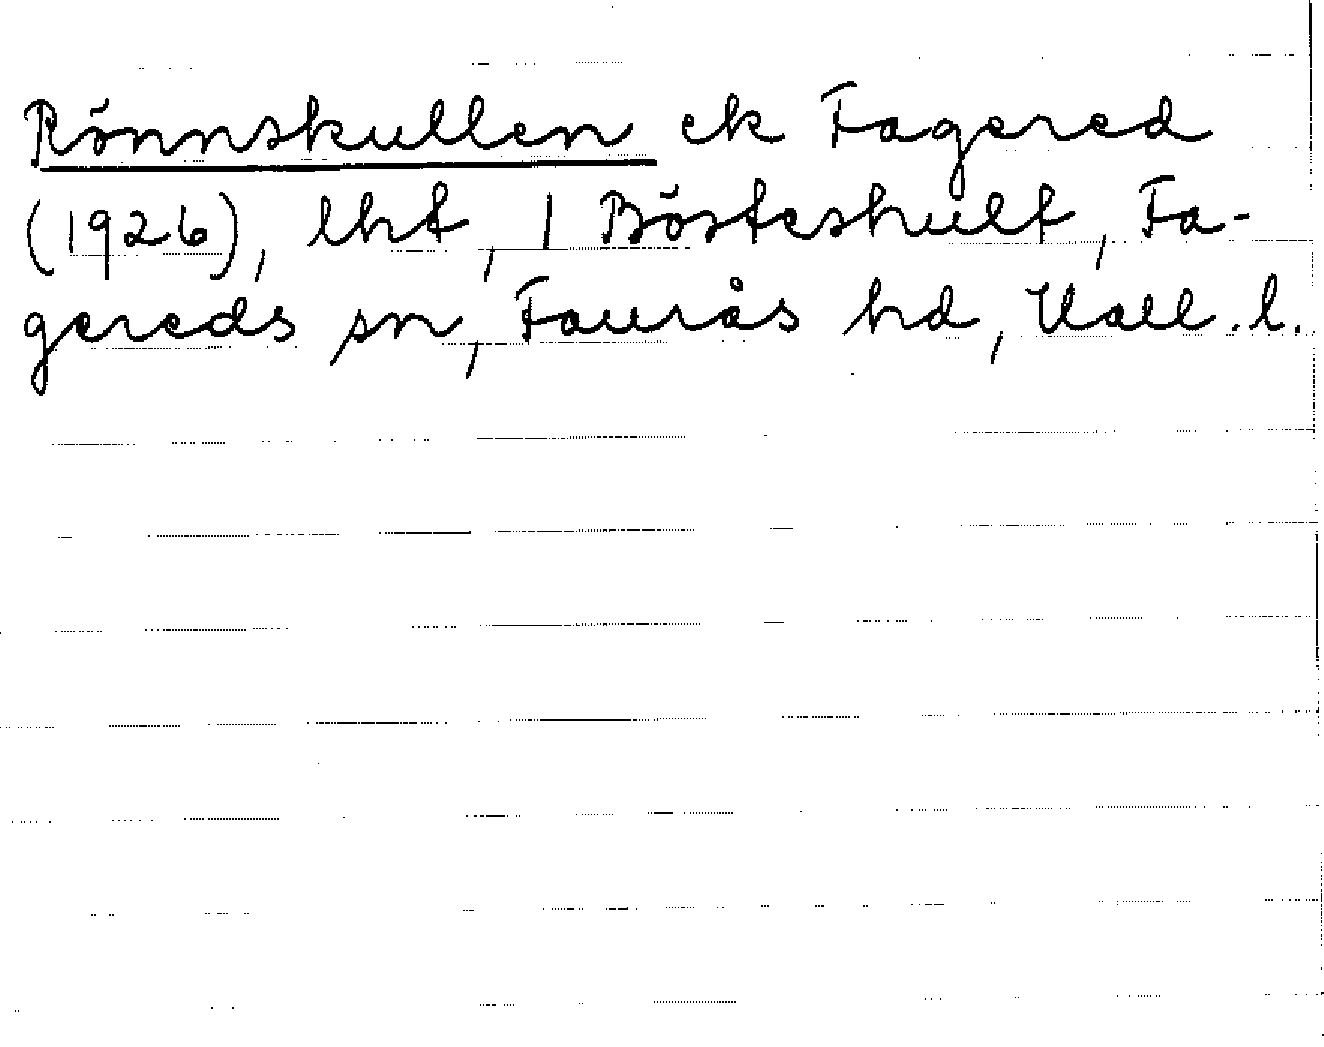 Rönnskullen ek Fagered
(1926), lht, 1 Bösteshult, Fa-
gereds sn, Faurås hd, Hall. l.